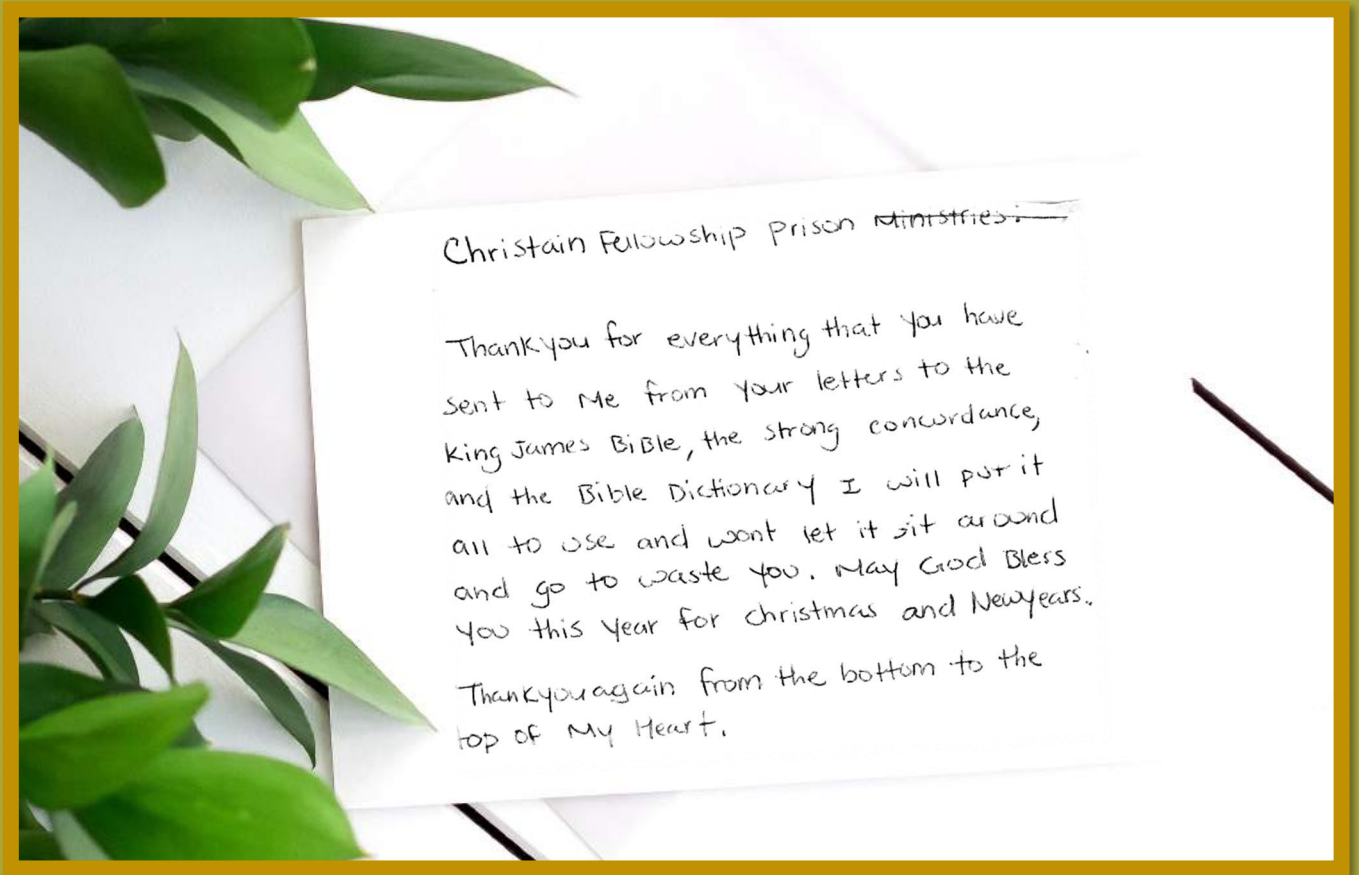 Christain Fellowship Prison Ministries:
Thankyou for everything that you have
sent to Me from your letters to the
King James BiBle, the strong concordance,
and the Bible Dictionary I will put it
all to use and wont let it sit around
and go to waste you. May God Bless
you this year for christmas and Newyears.
Thankyou again from the bottom to the
top of My Heart.